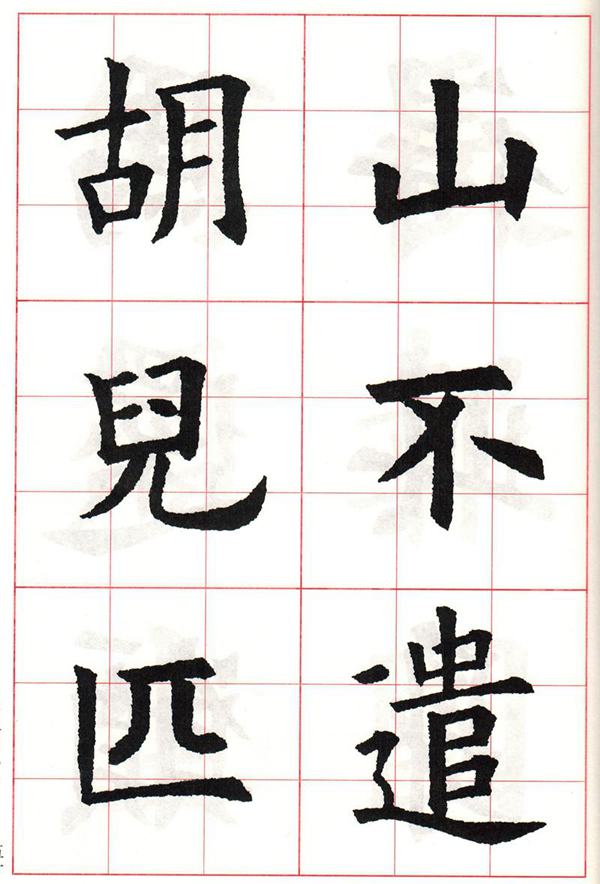 山不遣
胡兒匹